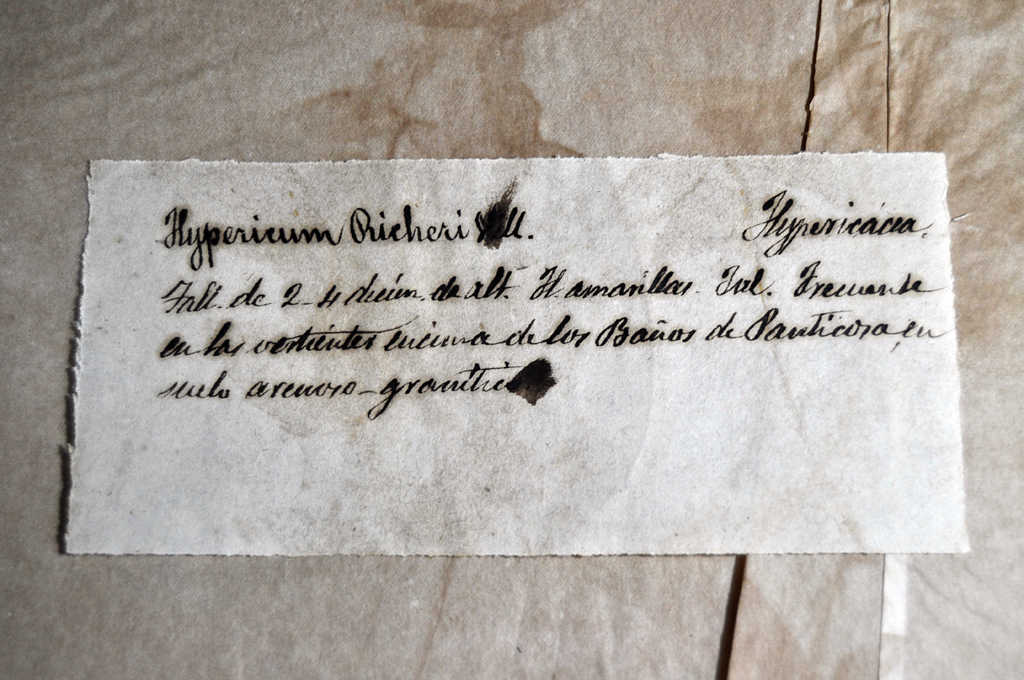 Hypericum Richeri Vill. Hypericácea.
Tall. de 2-4 decím. de alt. Fl. amarillas. Jul. Frecuente
en las vertientes encima de los Baños de Panticosa, en
suelo arenoso-granític